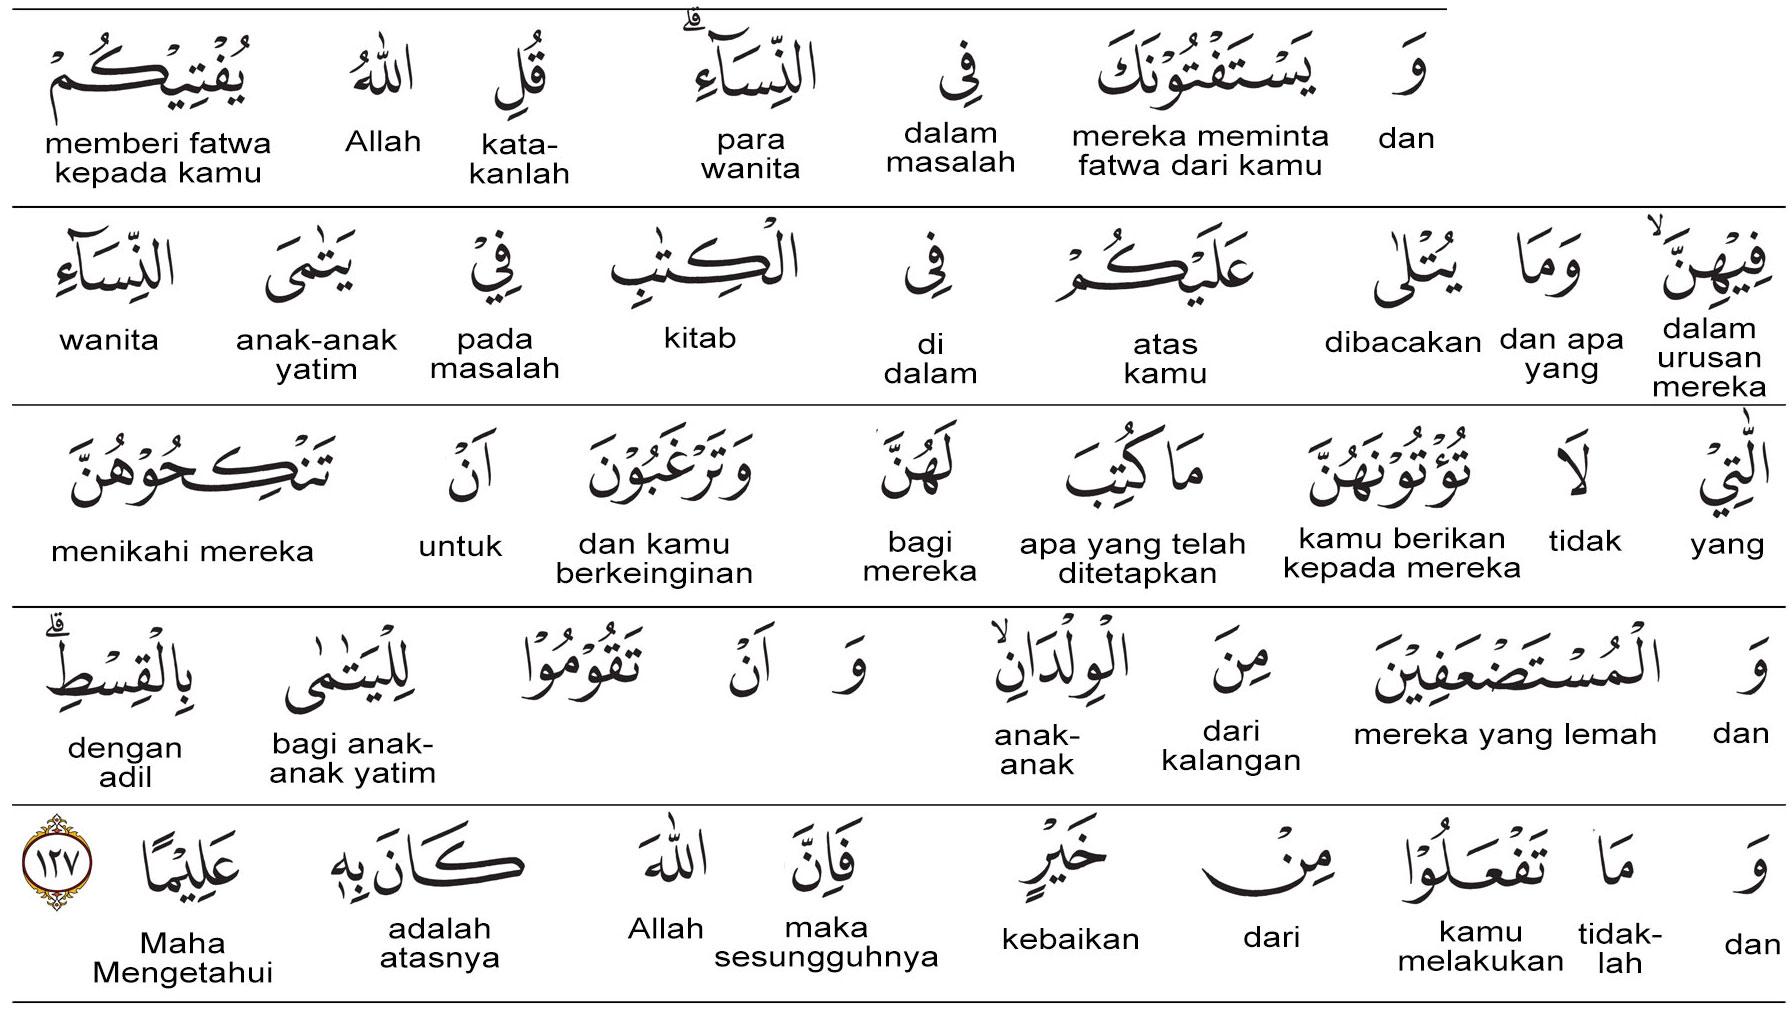 وَ يَسْتَفْتُوْنَكَ فِى النِّسَاۤءِۗ قُلِ اللّٰهُ يُفْتِيْكُمْ
dan mereka meminta dalam para kata- Allah memberi fatwa
fatwa dari kamu masalah wanita kanlah kepada kamu
فِيْهِنَّۙ وَمَا يُتْلٰى عَلَيْكُمْ فِى الْكِتٰبِ فِيْ يَتٰمَى النِّسَاۤءِ
dalam dan apa dibacakan atas di kitab pada anak-anak wanita
urusan yang kamu dalam masalah yatim
mereka
الّٰتِيْ لَا تُؤْتُوْنَهُنَّ مَا كُتِبَ لَهُنَّ وَتَرْغَبُوْنَ اَنْ تَنْكِحُوْهُنَّ
yang tidak kamu berikan apa yang telah bagi dan kamu untuk menikahi mereka
kepada mereka ditetapkan mereka berkeinginan
وَ الْمُسْتَضْعَفِيْنَ مِنَ الْوِلْدَانِۙ وَ اَنْ تَقُوْمُوْا لِلْيَتٰمٰى بِالْقِسْطِۗ
dan mereka yang lemah dari anak- bagi anak- dengan
kalangan anak anak yatim adil
وَ مَا تَفْعَلُوْا مِنْ خَيْرٍ فَاِنَّ اللّٰهَ كَانَ بِهٖ عَلِيْمًا ١٢٧
dan tidak- kamu dari kebaikan maka Allah adalah Maha
lah melakukan sesungguhnya atasnya Mengetahui